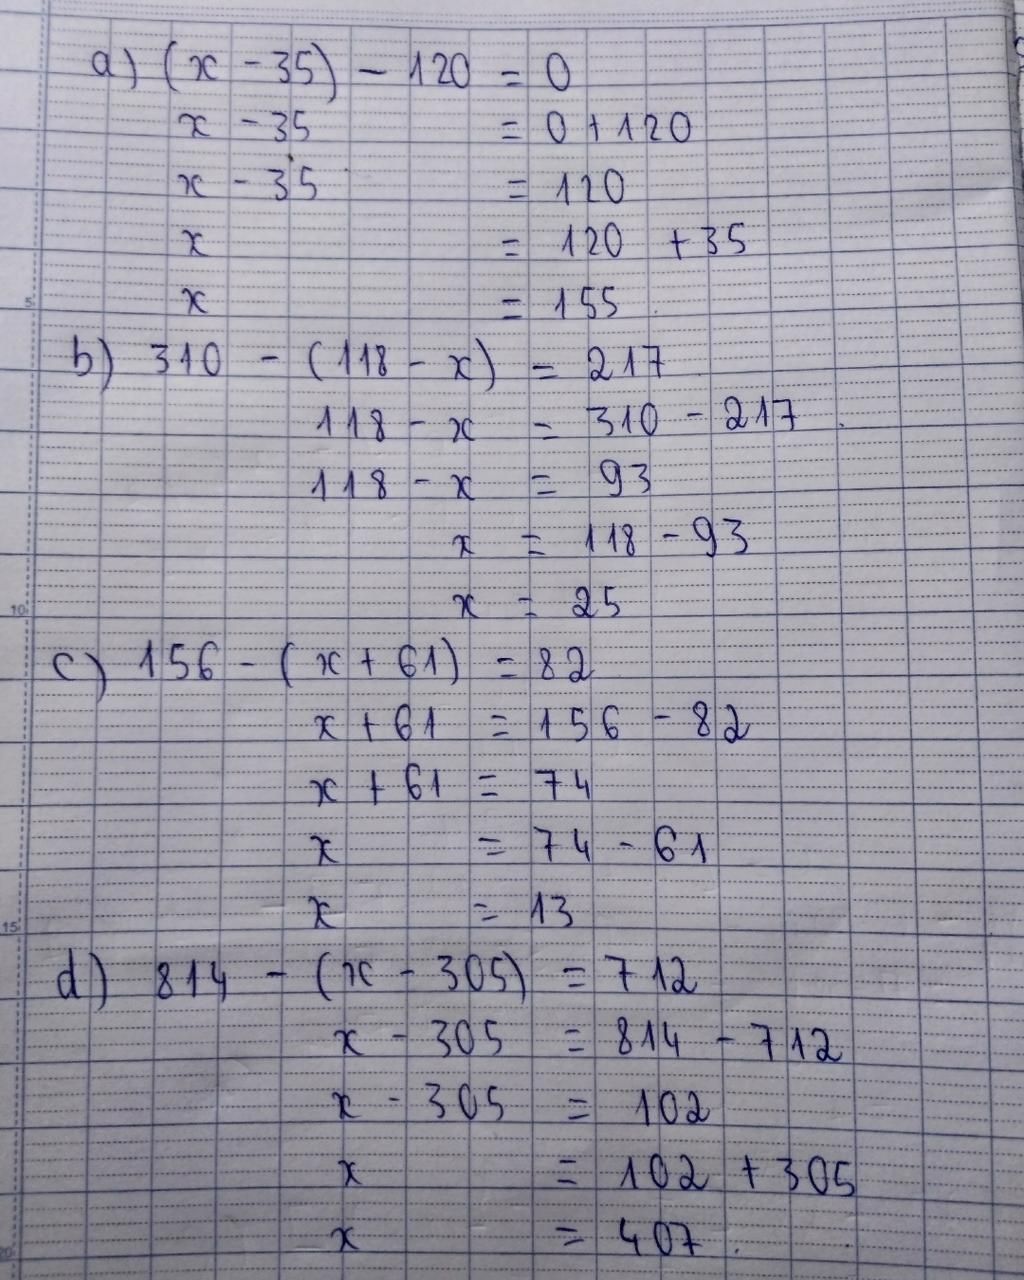 a) (x - 35) - 120 = 0
x - 35 = 0 + 120
x - 35 = 120
x = 120 + 35
x = 155
b) 310 - (118 - x) = 217
118 - x = 310 - 217
118 - x = 93
x = 118 - 93
x = 25
c) 156 - (x + 61) = 82
x + 61 = 156 - 82
x + 61 = 74
x = 74 - 61
x = 13
d) 814 - (x - 305) = 712
x - 305 = 814 - 712
x - 305 = 102
x = 102 + 305
x = 407